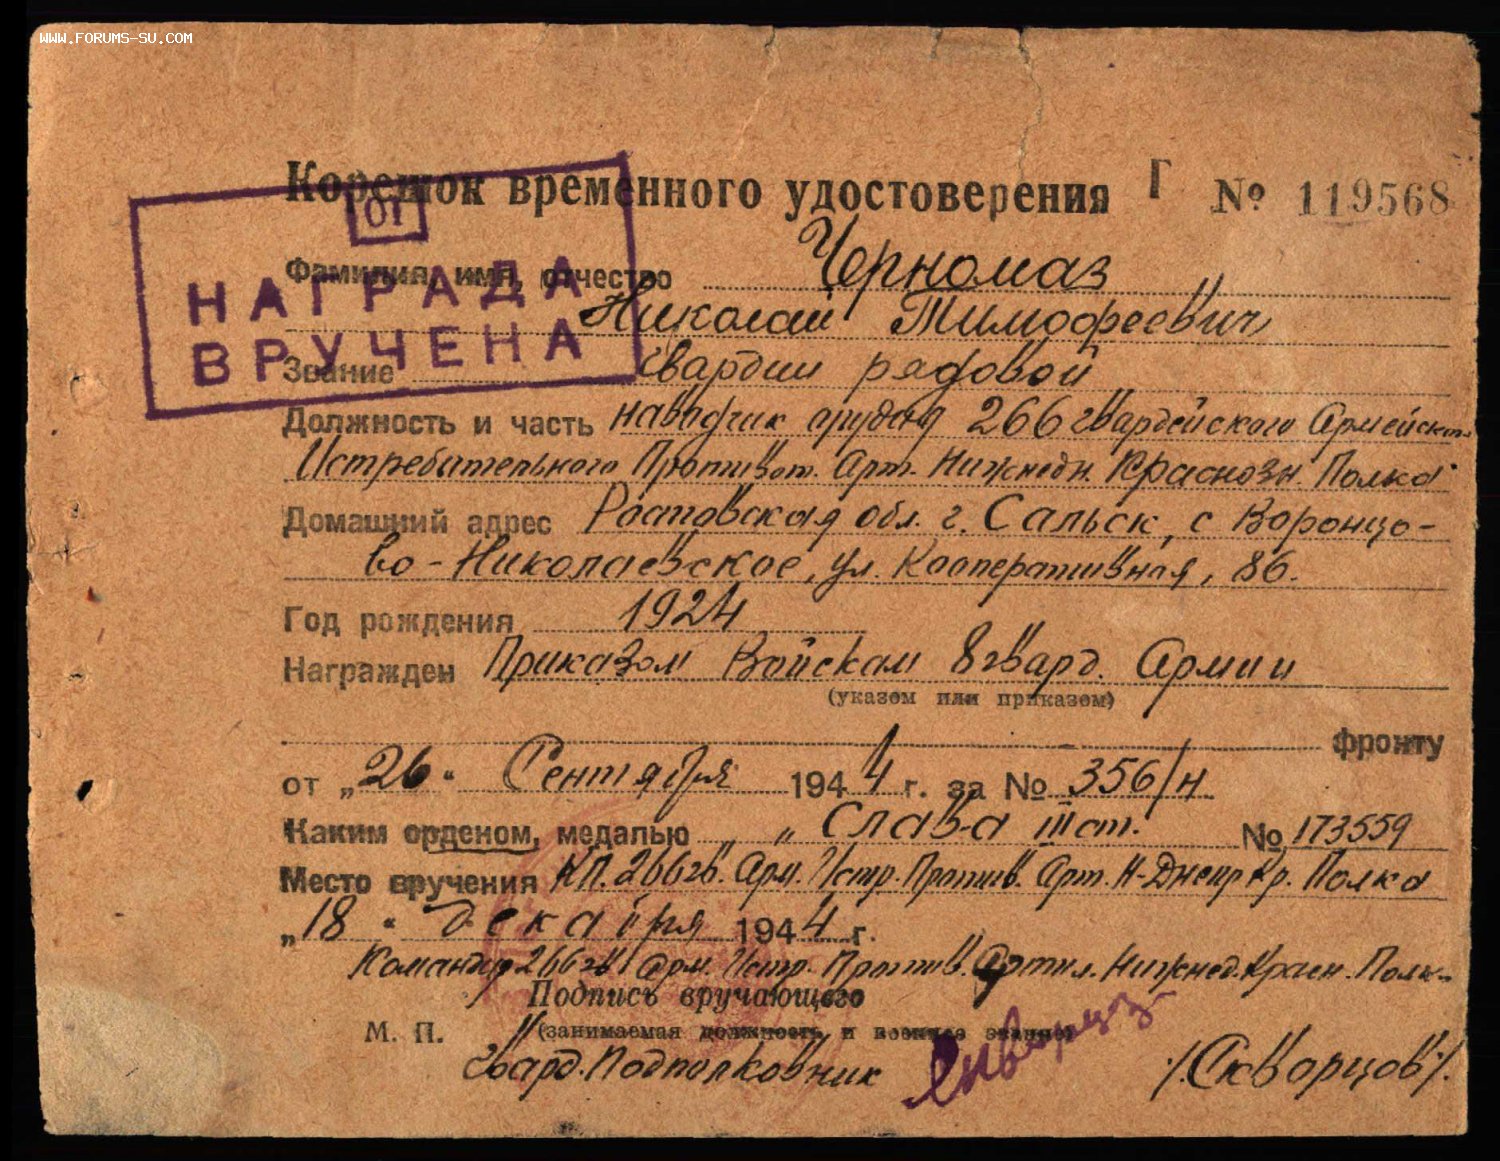 WWW.FORUMS-SU.COM
Корешок временного удостоверения Г № 119568
01
НАГРАДА
ВРУЧЕНА
Фамилия, имя, отчество Черномаз
Николай Тимофеевич
Звание гвардии рядовой
Должность и часть наводчик орудия 266 гвардейского Армейского
Истребительного Противот. Арт. Нижнедн. Краснозн. Полка
Домашний адрес Ростовская обл. г. Сальск, с Воронцо-
во-Николаевское, ул. Кооперативная, 86.
Год рождения 1924
Награжден Приказом Войскам 8 гвард. Армии
(указом или приказом)
фронту
от „26“ Сентября 1944 г. за № 356/н
Каким орденом, медалью „Слава III ст. № 173559
Место вручения КП. 266 гв. Арм. Истр. Против. Арт. Н-Днепр Кр. Полка
„18“ декабря 1944 г.
Командир 266 гв Арм. Истр. Против. Артил. Нижнед. Красн. Полк
Подпись вручающего
М. П. (занимаемая должность и военное звание)
гвард. Подполковник Скворцов /.Скворцов./